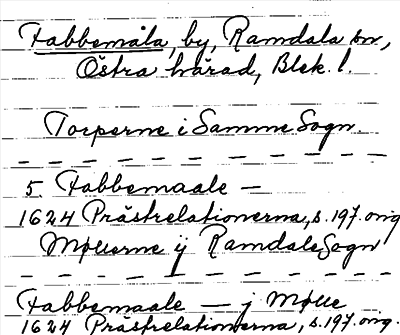 Fabbemåla, by, Ramdala sn,
Östra härad, Blek. l.
Torperne i Samme Sogn.
5 Fabbemaale —
1624 Prästrelationerna, s. 197. orig
Møllerne ÿ Ramdale Sogn
Fabbemaale — j Mølle
1624 Prästrelationerna, s. 197. orig.